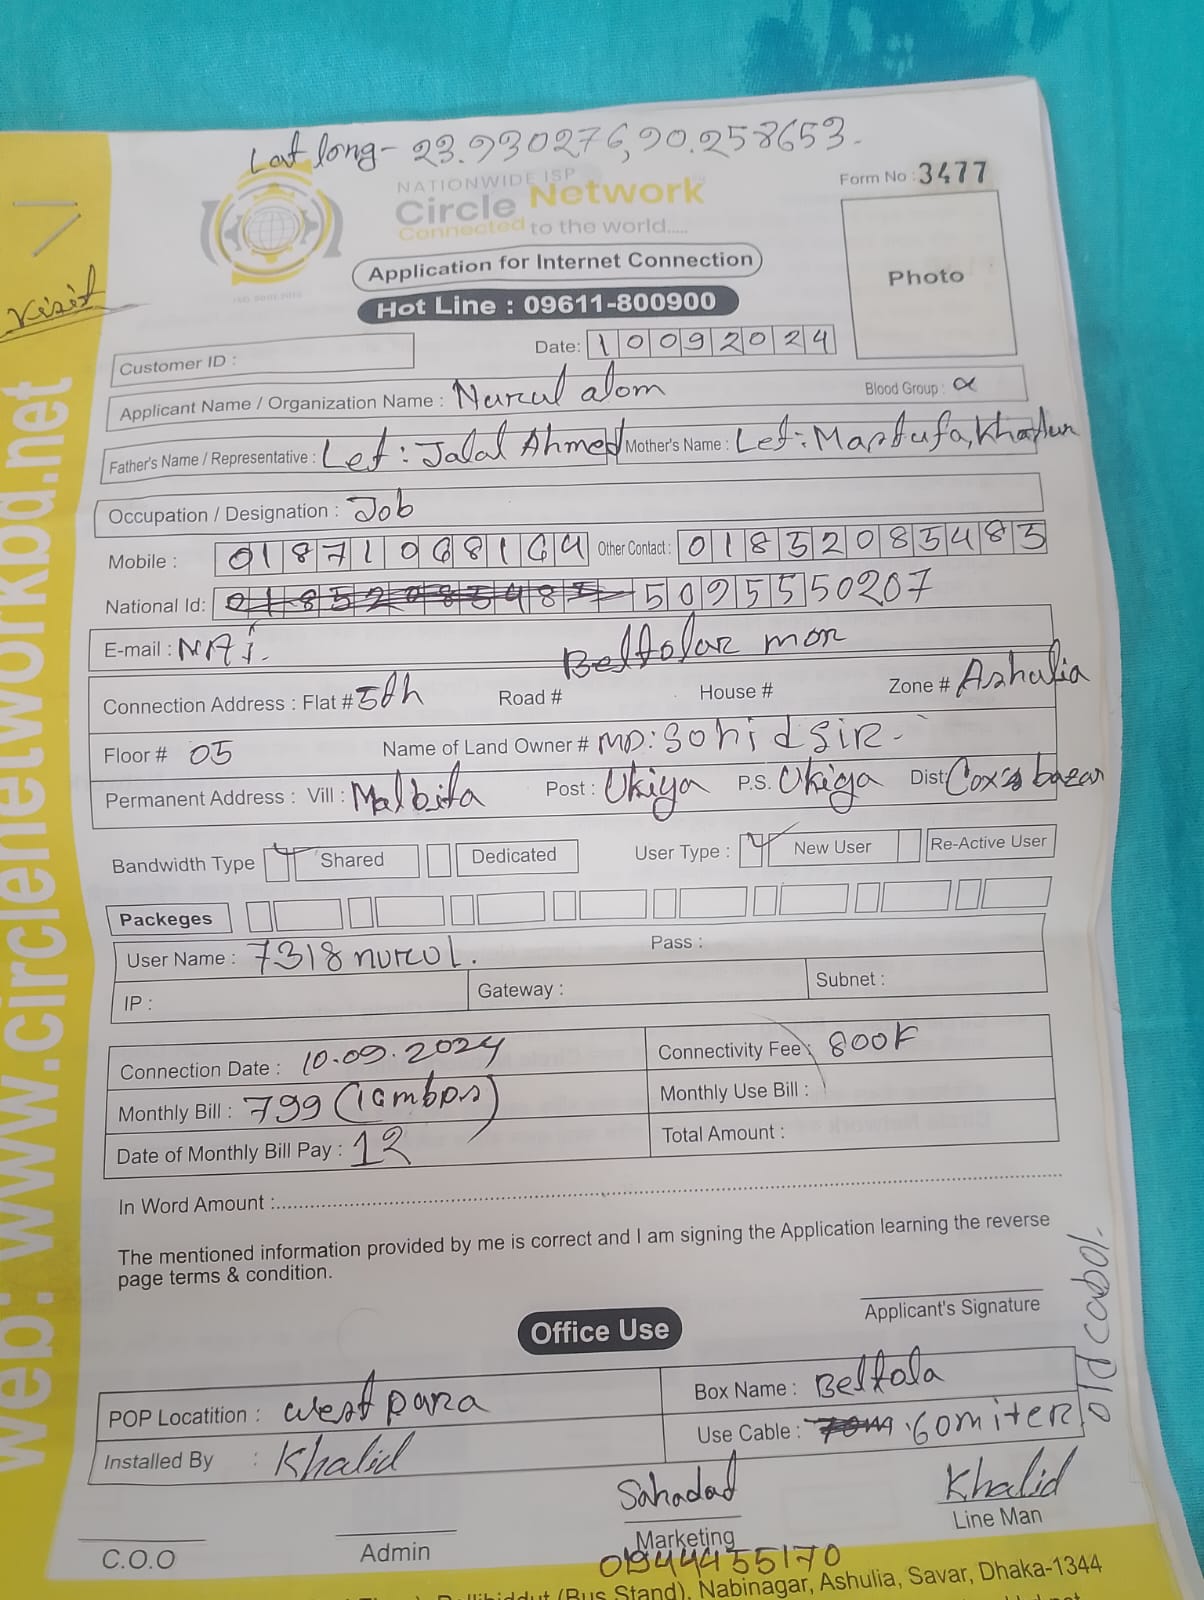 Lat long- 23.930276,90.258653.
Form No : 3477
NATIONWIDE ISP
Circle Network
Connected to the world.....
Photo
Application for Internet Connection
Visit
Hot Line : 09611-800900
Customer ID :
Date: 10092024
Applicant Name / Organization Name : Nurul alom Blood Group :
Father's Name / Representative : Let : Jalal Ahmed Mother's Name : Let : Mastufa, Khatun
Occupation / Designation : Job
Mobile : 01871068164 Other Contact : 01852085483
National Id: 5095550207
E-mail :
Beltolar mor
Connection Address : Flat # 5th Road # House # Zone # Ashulia
Floor # 05 Name of Land Owner # MD: Sohid SIR.
Permanent Address : Vill : Malbita Post : Ukiya P.S. Ukiya Dist Cox's bazar
Bandwidth Type Shared Dedicated User Type : New User Re-Active User
Packeges
User Name : 7318nurul. Pass :
IP : Gateway : Subnet :
Connection Date : 10.09.2024 Connectivity Fee : 800
Monthly Bill : 799 (16mbps) Monthly Use Bill :
Date of Monthly Bill Pay : 12 Total Amount :
In Word Amount :
The mentioned information provided by me is correct and I am signing the Application learning the reverse
page terms & condition.
Applicant's Signature
Office Use
POP Locatition : west para Box Name : Beltola
Installed By : Khalid Use Cable : 70m 60miter
old cabol.
Sahadat Khalid
C.O.O Admin Marketing Line Man
01944455170
(Bus Stand), Nabinagar, Ashulia, Savar, Dhaka-1344
web: www.circlenetworkbd.net